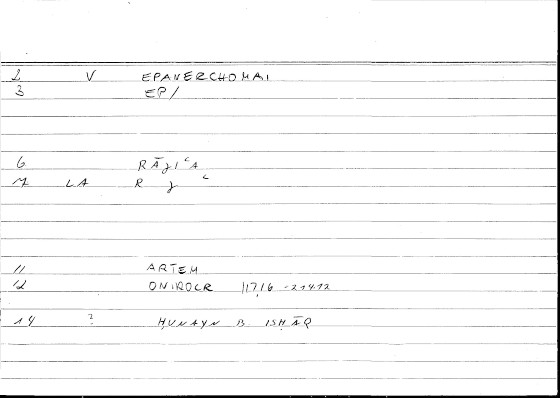 2 V EPANERCHOMAI
3 EP/
6 RĀǧIʿA
7 LA R ǧ ʿ
11 ARTEM
12 ONIROCR
14 ? ḤUNAYN B ISḤĀQ